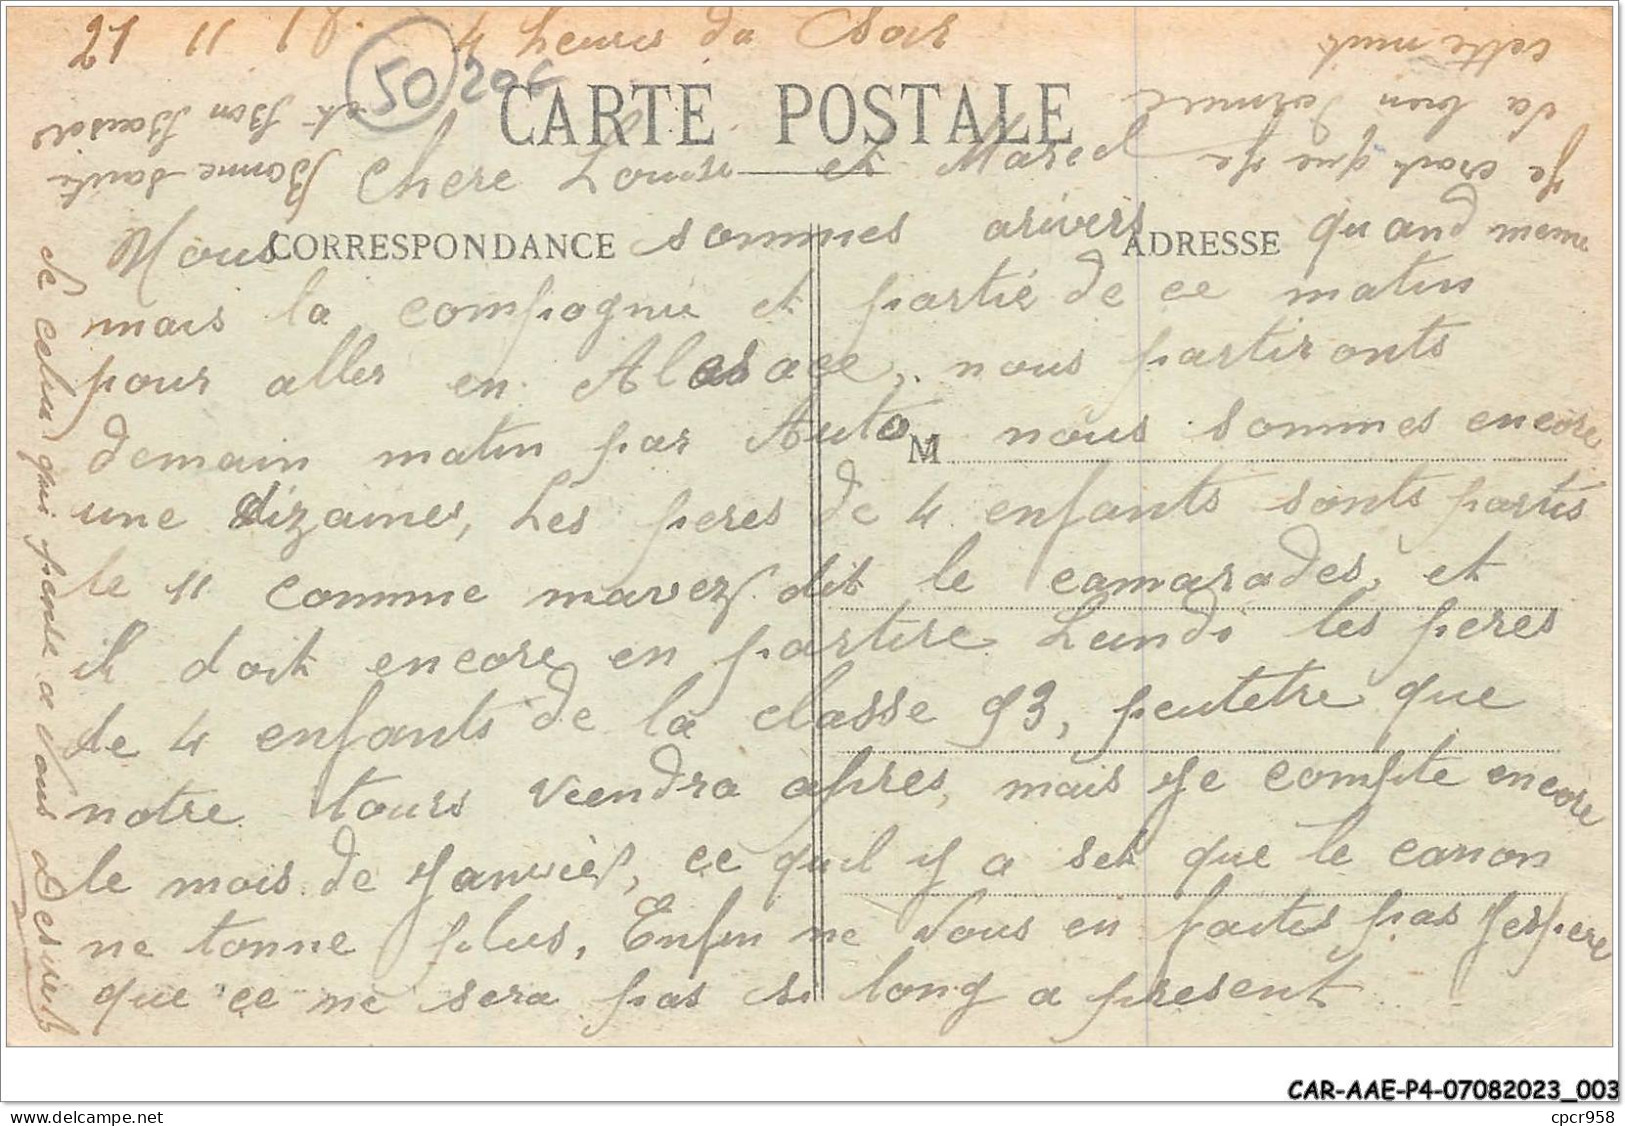 21 11 18. 4 heures du Soir
50
20c
CARTE POSTALE
Chere Louise et Marcel
CORRESPONDANCE
ADRESSE
Nous sommes arivers quand meme
mais la compagnie et partie de ce matin
pour aller en Alasace, nous partironts
demain matin par Auto nous sommes encore
M
une dizaines, Les peres de 4 enfants sonts partis
le 11 comme mavez dit le camarades, et
il doit encore en partire Lundi les peres
de 4 enfants de la classe 93, peutetre que
notre tours viendra apres, mais Je compte encore
le mois de Janvier, ce quil y a set que le canon
ne tonne plus, Enfin ne Vous en faites pas Jespere
que ce ne sera pas si long a present
Je crois que Je
va bien dormire
cette nuit
Bonne santé
et Bon Baisers
de celui qui pense a Vous Desirer
CAR-AAE-P4-07082023_003
cpcr958